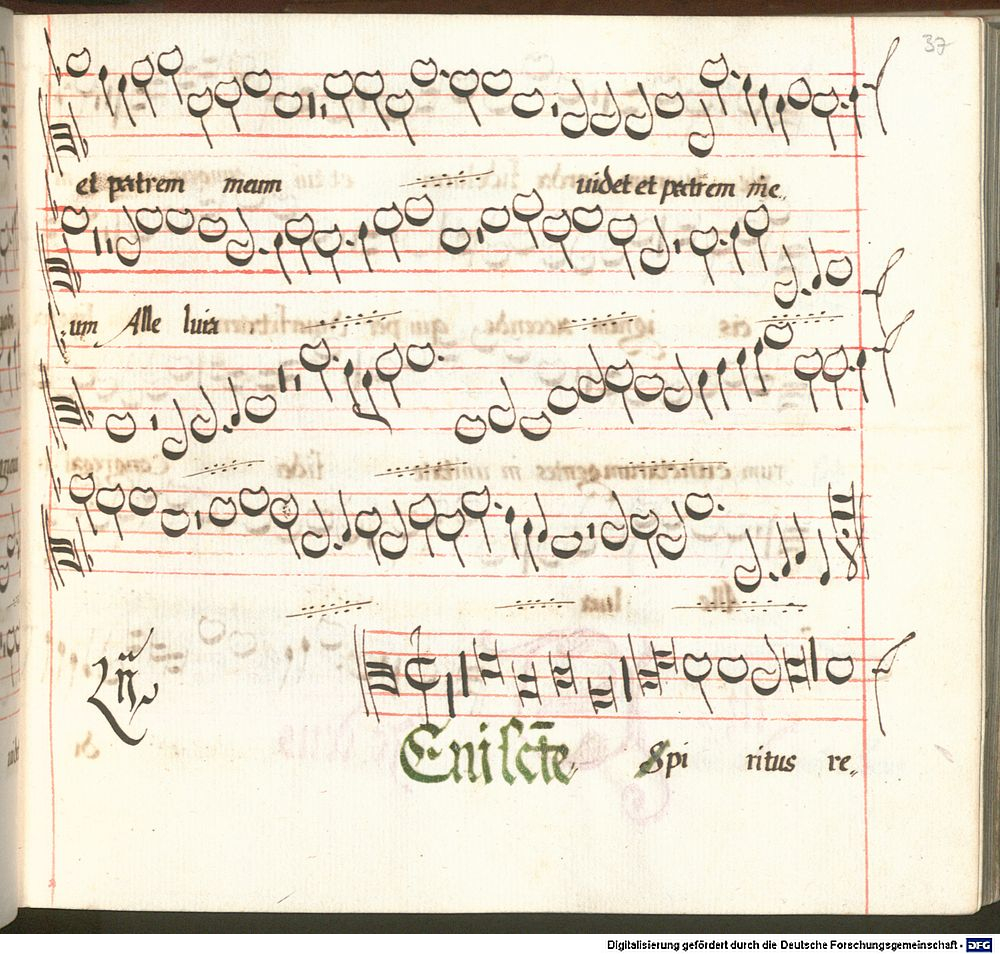 37
et patrem meum videt et patrem me„
um Alle luia
Eni scte Spi ritus re„
Digitalisierung gefördert durch die Deutsche Forschungsgemeinschaft - DFG